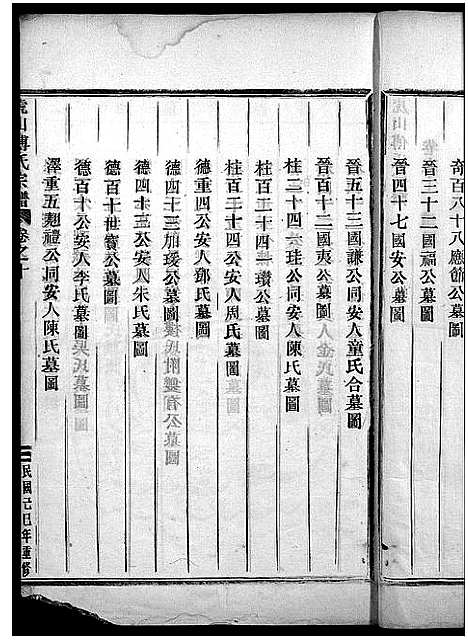 奇百八十八應節公墓圖
晉三十二國福公墓圖
晉四十七國安公墓圖
晉五十三國謙公同安人童氏合墓圖
晉百十二國夷公墓圖
桂二十四 珪公同安人陳氏墓圖
桂二十四 瓚公墓圖
桂百二十四公安人周氏墓圖
德重四公安人鄧氏墓圖
德四十三 公墓圖
德四十五公安人朱氏墓圖
德百十世寶公墓圖
德百十公安人李氏墓圖
澤重五 禮公同安人陳氏墓圖
虎山傅氏宗譜 卷之十 民國 巳年重修